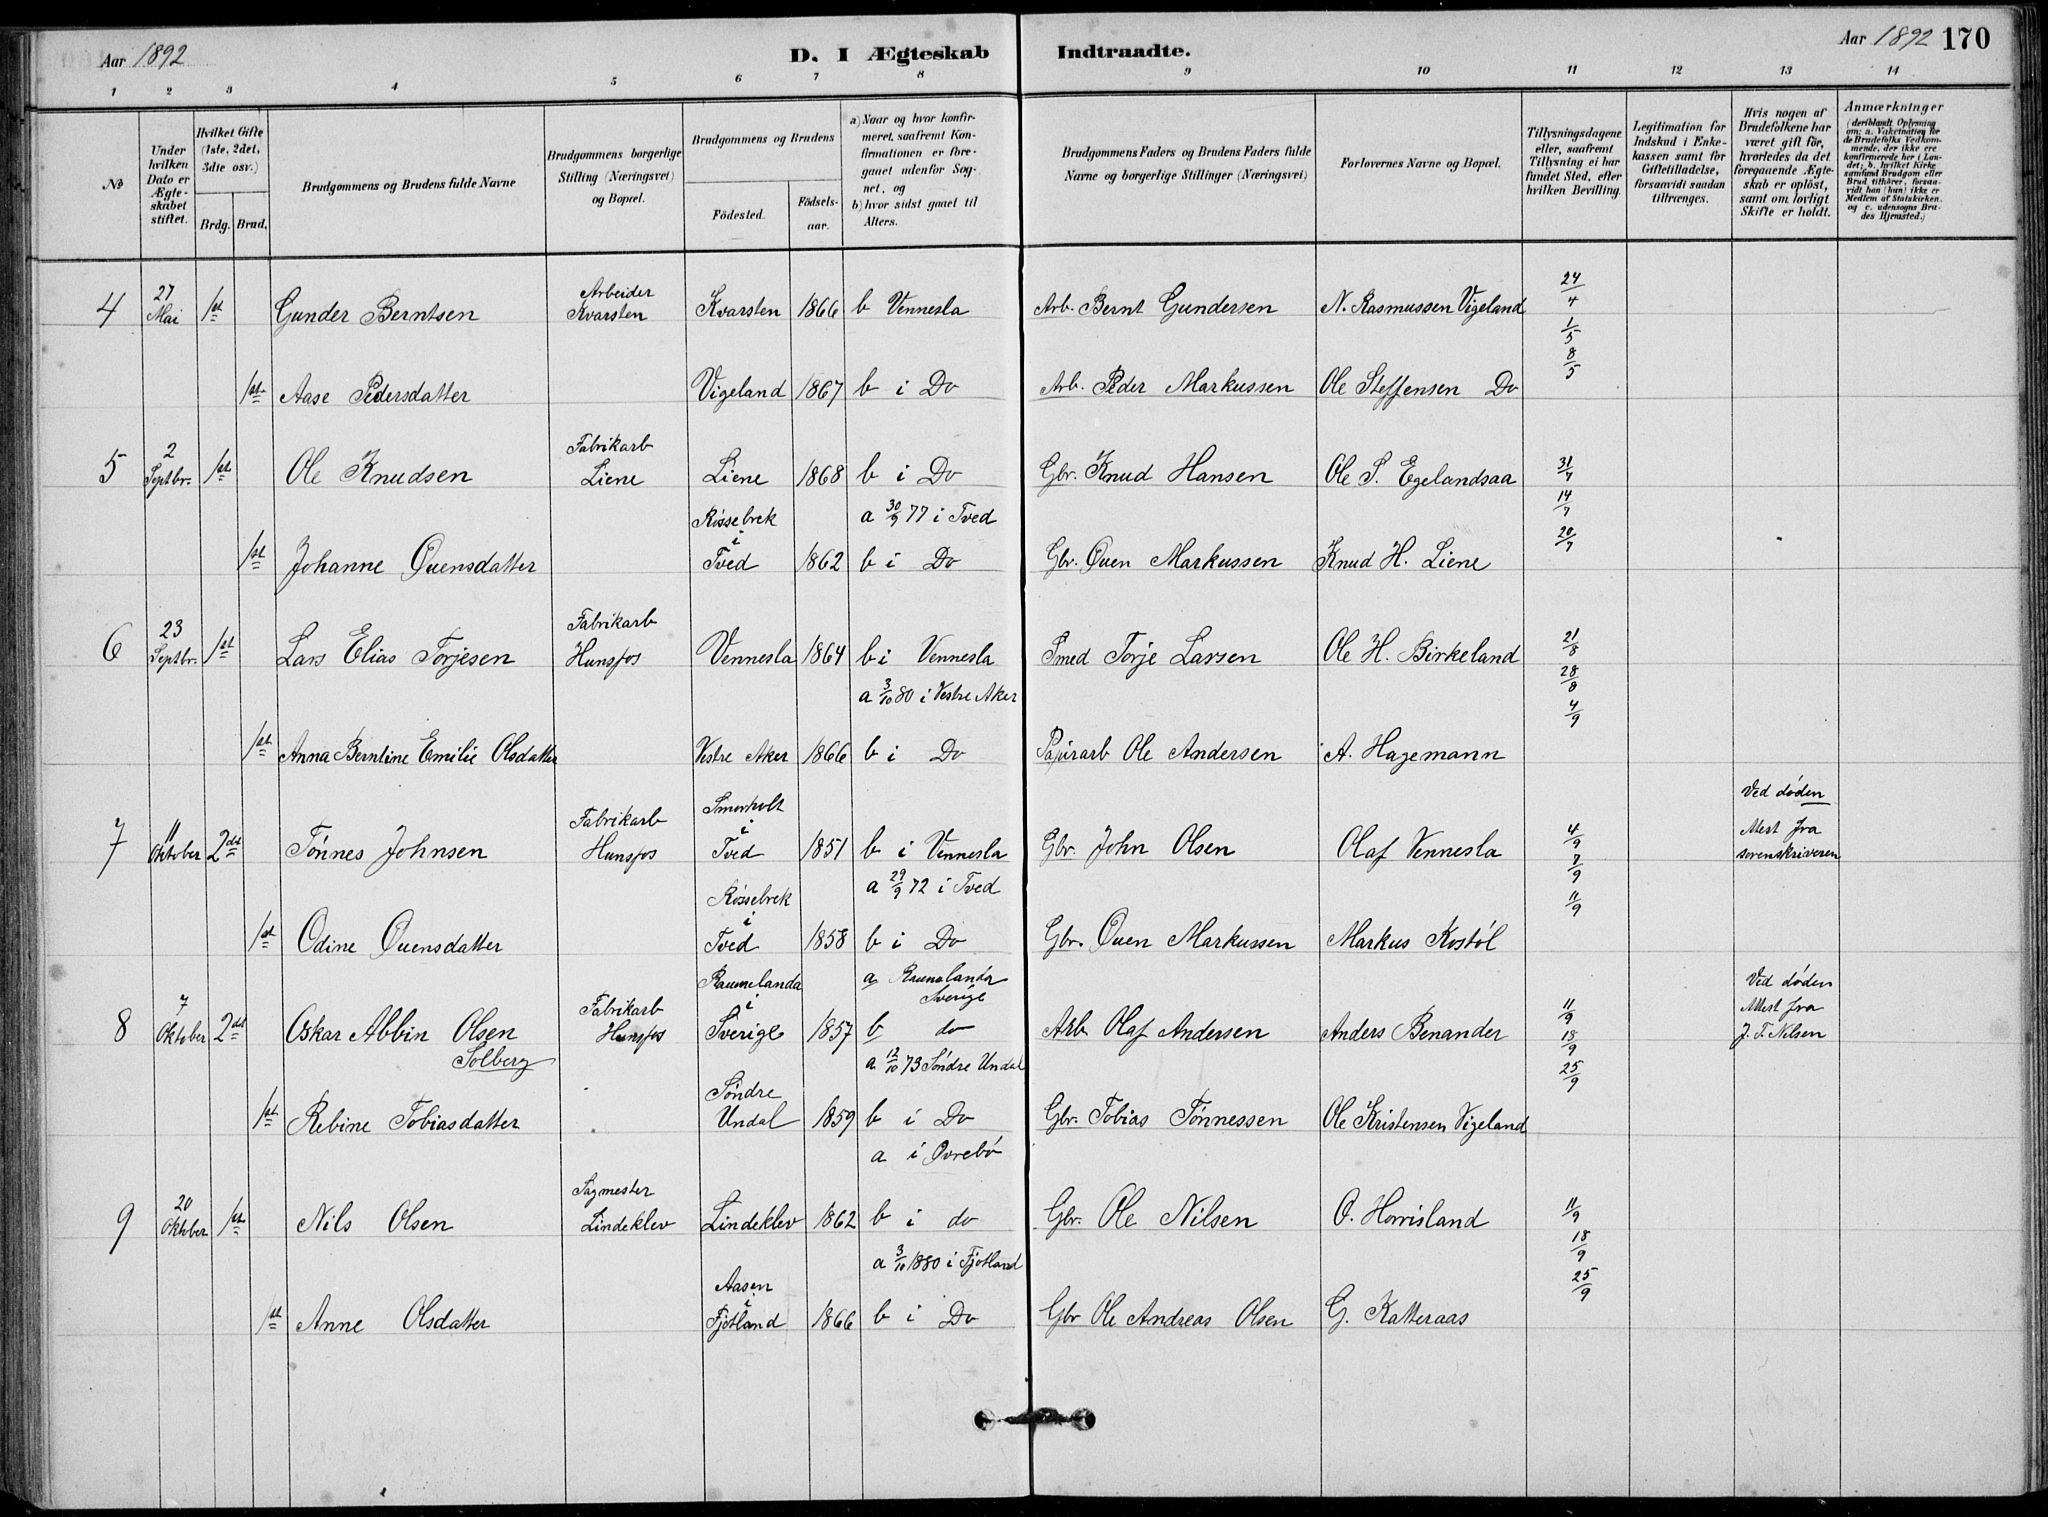 Aar 1892
D. I Ægteskab Indtraadte.
Aar 1892 170
1 2 3 4 5 6 7 8 9 10 11 12 13 14
No
Under hvilken Dato er Ægteskabet stiftet.
Hvilket Gifte (1ste, 2det, 3die osv.)
Brdg. Brud.
Brudgommens og Brudens fulde Navne
Brudgommens borgerlige Stilling (Næringsvei) og Bopæl.
Brudgommens og Brudens
Fødested.
Fødselsaar.
a) Naar og hvor konfirmeret, saafremt Konfirmationen er foregaaet udenfor Sognet, og
b) hvor sidst gaaet til Alters.
Brudgommens Faders og Brudens Faders fulde Navne og borgerlige Stillinger (Næringsvei)
Forlovernes Navne og Bopæl.
Tillysningsdagene eller, saafremt Tillysning ei har fundet Sted, efter hvilken Bevilling.
Legitimation for Indskud i Enkekassen samt for Giftetilladelse, forsaavidt saadan tiltrænges.
Hvis nogen af Brudefolkene har været gift før, hvorledes da det foregaaende Ægteskab er opløst, samt om lovligt Skifte er holdt.
Anmærkninger (deriblandt Oplysning om: a. Vakcination for de Brudefolks Vedkommende, der ikke ere konfirmerede her i Landet; b. hvilket Kirkesamfund Brudgom eller Brud tilhører, forsaavidt han (hun) ikke er Medlem af Statskirken, og c. udensogns Brudes Hjemsted.)
4 27 Mai 1st Gunder Berntsen Arbeider Kvarsten Kvarsten 1866 b Vennesla Arb. Bernt Gundersen N. Rasmussen Vigeland 24/4 1/5 8/5
1st Aase Pedersdatter Vigeland 1867 b i Do Arb. Peder Markussen Ole Steffensen Do
5 2 Septbr. 1st Ole Knudsen Fabrikarb Liene Liene 1868 b i Do Gbr. Knud Hansen Ole S. Egelandsaa 31/7 14/7 20/7
1st Johanne Ouensdatter Rissebrek i Tved 1862 a 30/9 77 i Tved b i Do Gbr. Ouen Markussen Knud H. Liene
6 23 Septbr. 1st Lars Elias Torjesen Fabrikarb Hunsfos Vennesla 1864 b i Vennesla Smed Torje Larsen Ole H. Birkeland 21/8 28/8 4/9
1st Anna Berntine Emilie Olsdatter Vestre Aker 1866 a 3/10 80 i Vestre Aker b i Do Papirarb Ole Andersen A. Hagemann
7 11 Oktober 2det Tønnes Johnsen Fabrikarb Hunsfos i Tved 1851 b i Vennesla Gbr. John Olsen Olaf Vennesla 4/9 7/9 11/9 Ved døden Attest fra sorenskriveren
1st Odine Ouensdatter Rissebrek i Tved 1858 a 29/9 72 i Tved b i Do Gbr. Ouen Markussen Markus Kostøl
8 7 Oktober 2det Oskar Abbin Olsen Solberg Fabrikarb Hunsfos Raumelanda i Sverige 1857 a Raumelanda Sverige b do Arb Olaf Andersen Anders Benander 11/9 18/9 25/9 Ved døden Attest fra J. F. Nilsen
1st Rebine Tobiasdatter Søndre Undal 1859 a 12/10 73 Søndre Undal b i Do Gbr. Tobias Tønnessen Ole Kristensen Vigeland
9 20 Oktober 1st Nils Olsen Sagmester Lindeklev Lindeklev 1862 a i Øvrebø b i do Gbr. Ole Nilsen O. Homisland 11/9 18/9 25/9
1st Anne Olsdatter Aasen i Fjotland 1866 a 3/10 1880 i Fjotland b i Do Gbr Ole Andreas Olsen G. Katteraas